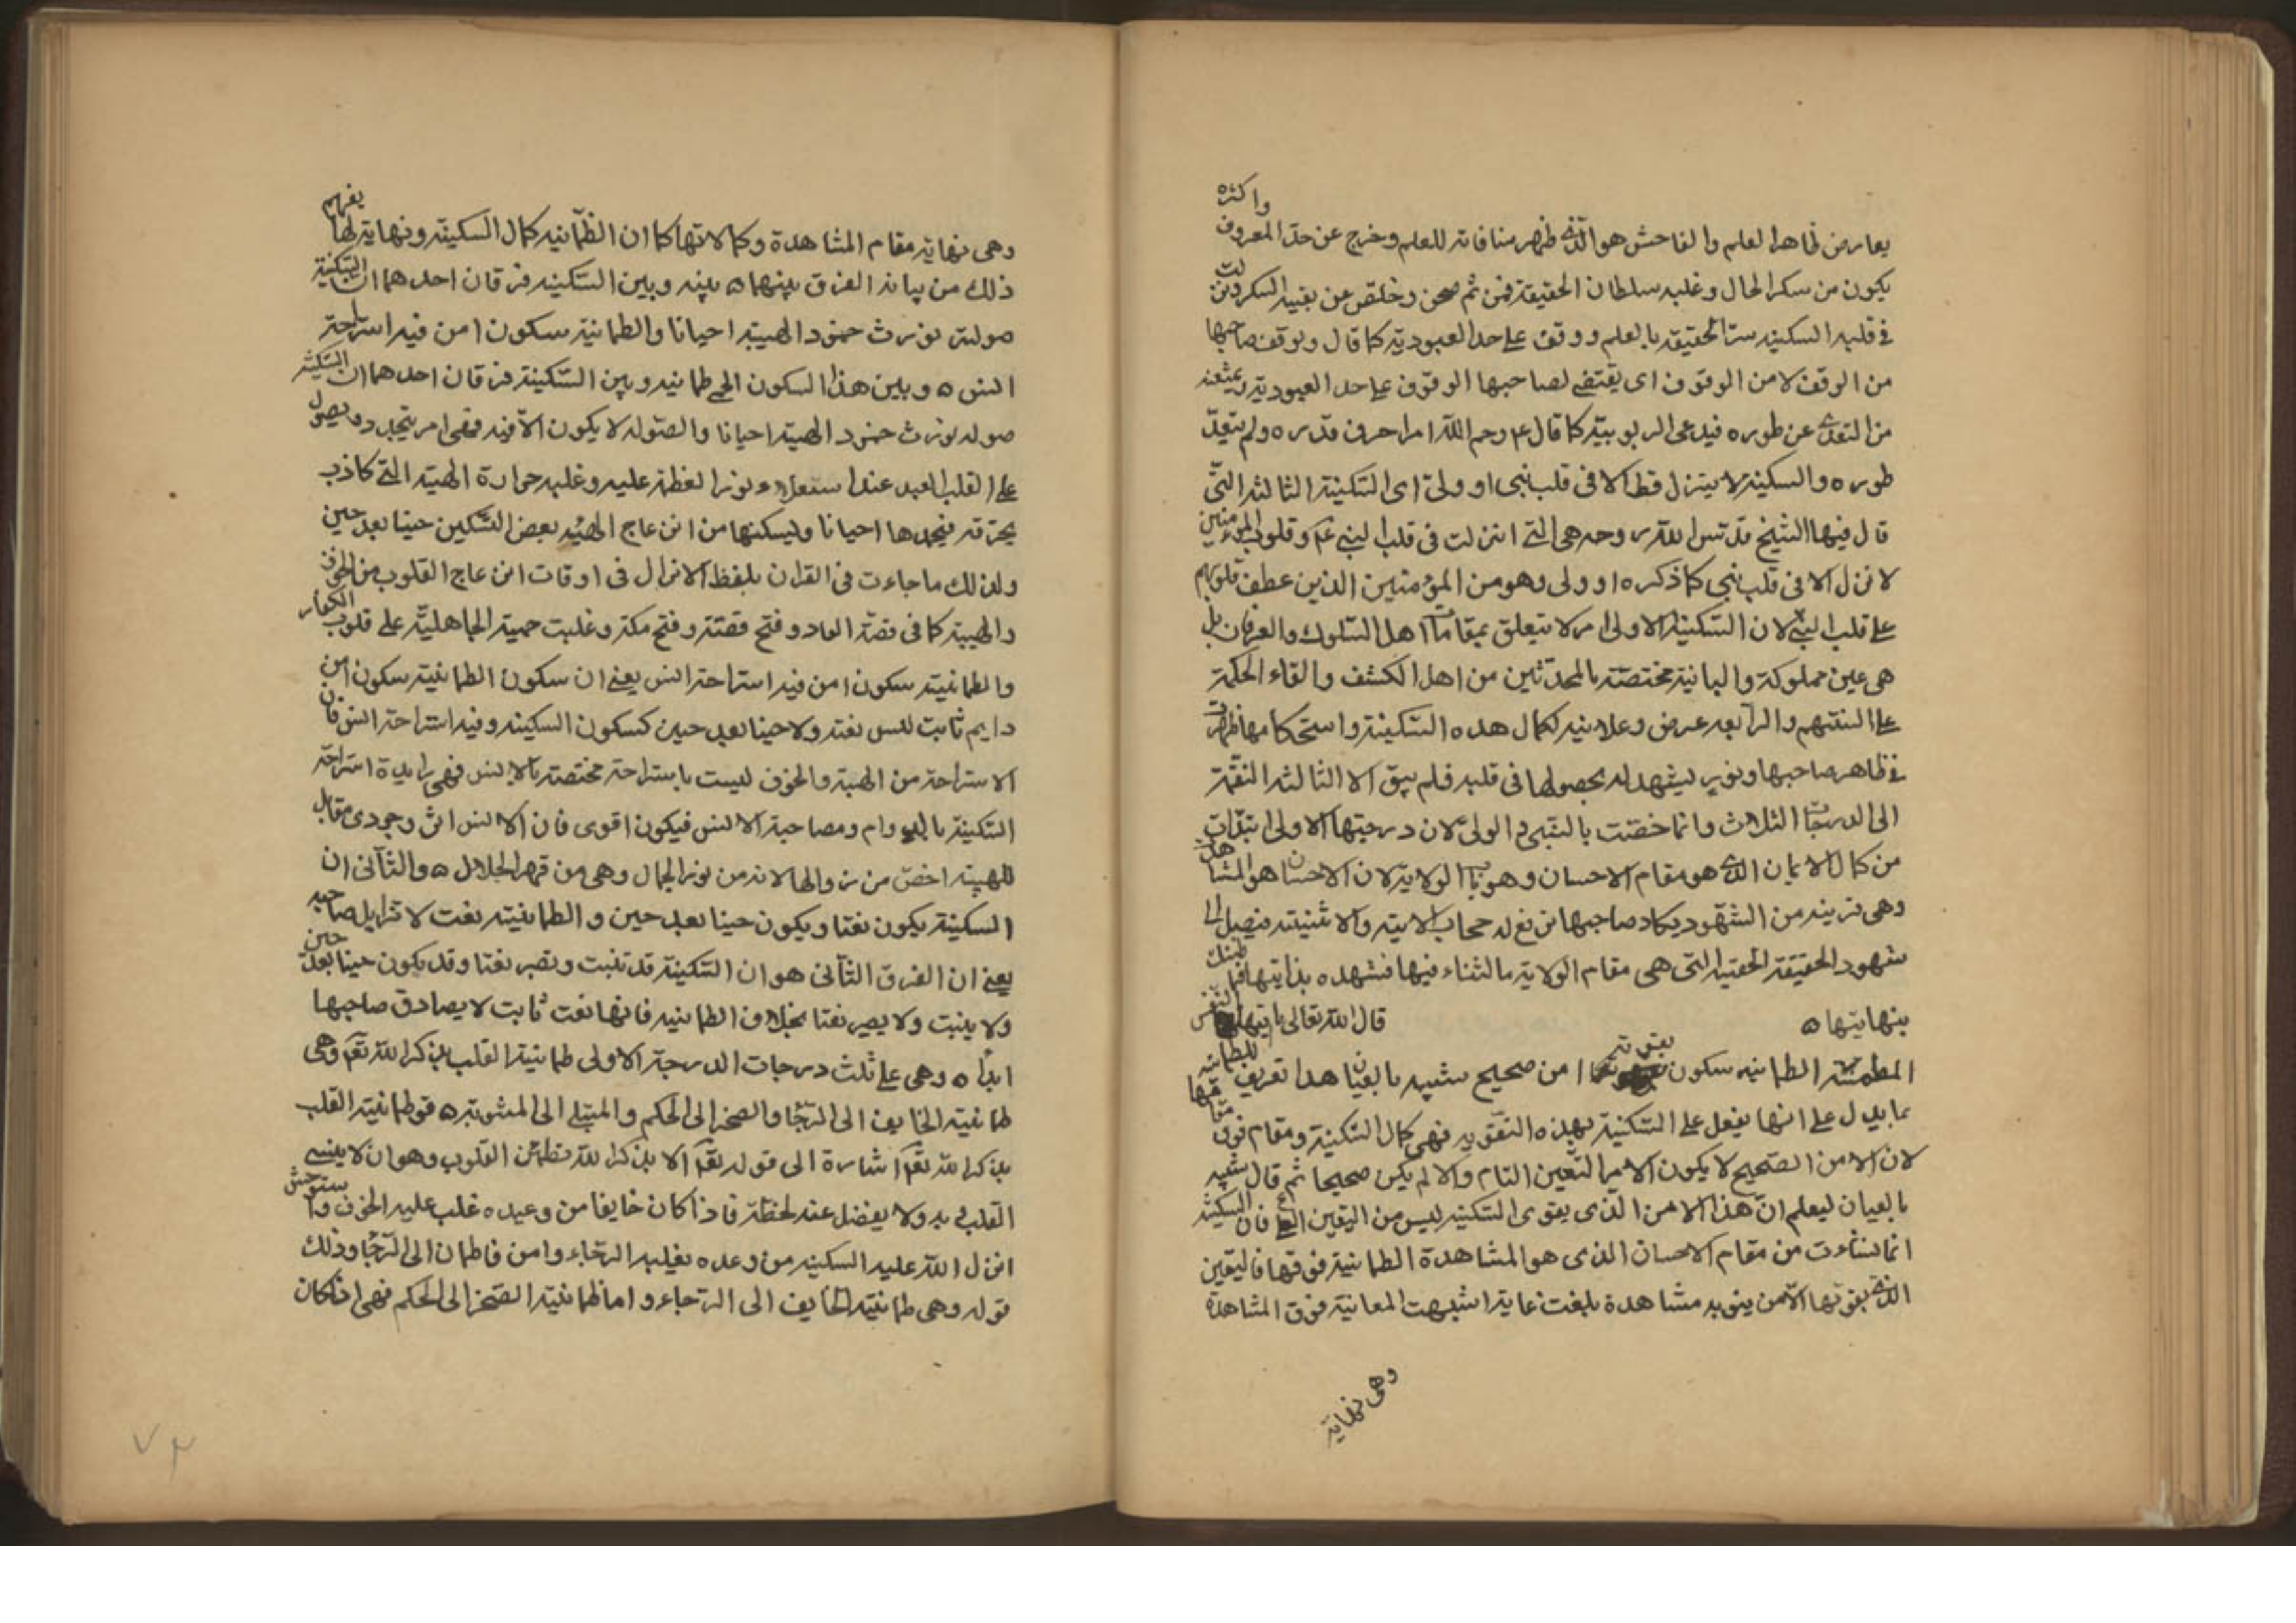 يعارض ظاهر العلم والفاحش هو الذى ظهر منافاته للعلم وخرج عن حد المعروف واكثره
يكون من سكر الحال وغلبه سلطان الحقيقة فمن ثم صحى وخلص عن بقيه السكر ونزلت
فى قلبه السكينه ستر الحقيقه بالعلم ووقف على حد العبودية كما قال ويوقف صاحبها
من الوقف لا من الوقوف اى يقتضى لصاحبها الوقوف على حد العبودية ويمنعه
من التعدى عن طوره فيدعى الربوبية كما قال ع رحم الله امرا عرف قدره ولم يتعد
طوره ه والسكينة لا ينزل قط الا فى قلب نبى او ولى اى السكينة الثالثه التى
قال فيها الشيخ قدس الله روحه هى التى انزلت فى قلب النبى عم وقلوب المؤمنين
لا نزل الا فى قلب نبى كما ذكره او ولى وهو من المؤمنين الذين عطف قلوبهم
على قلب النبى لان السكينة الاولى امر لا يتعلق بمقامات اهل السلوك والعرفان بل
هى عين مملوكة والثانية مختصة بالمحدثين من اهل الكشف والقاء الحكمة
على السنتهم والرابعه عرض وعلانيه لكمال هذه السكينة واستحكامها ظهرت
فى ظاهر صاحبها ونور ليشهد له بحصولها فى قلبه فلم يبق الا الثالثه
الى الدرجات الثلاث وانما خصت بالنبى والولى لان درجتها الاولى ابتدات
من كمال الايمان الذى هو مقام الاحسان وهو باب الولاية لان الاحسان هو المشاهدة
وهى قريبه من الشهود يكاد صاحبها ان يرفع له حجاب الاثنينية فيصل الى
شهود الحقيقة الحقية التى هى مقام الولاية بالفناء فيها فشهده بدايتها فما ظنك
بنهايتها ه قال الله تعالى يا ايتها النفس
المطمئنة الطمانيه سكون يقويه امن صحيح شبيه بالعيان هذا تعريف للطمانيه
بما يدل على انها يفعل على السكنية بهذه التقويه فهى كمال السكينة ومقام فوق مقامها
لان الامن الصحيح لا يكون الا من اليقين التام والا لم يكن صحيحا ثم قال شبيه
بالعيان ليعلم ان هذا الامن الذى يقوى السكنيه ليس من اليقين فان السكينة
انما نشاءت من مقام الاحسان الذى هو المشاهدة الطمانية فوقها فاليقين
الذى يقويها الامن ينوبه مشاهدة بلغت غاية اشبهت المعانية فوق المشاهدة
وهى نهاية
وهى نهاية مقام المشاهدة وكمالاتها كما ان الطمانيه كمال السكينة ونهاية لها يفهم
ذلك من بيانه الفرق بينهما ه بينه وبين السكينه فرقان احدهما ان السكينة
صولة تورث خمود الهيبة احيانا والطمانية سكون امن فيه استراحة
انس ه وبين هذا السكون الحى طمانيه وبين السكينة فرقان احدهما ان السكينة
صوله تورث خمود الهيبة احيانا والصوله لا يكون الا فهى امر يتجدد ويصول
على القلب العبد عند استعلاء نور العظمة عليه وغلبه حرارة الهيبة التى كادت
يحرقه فيخمدها احيانا وليسكنها من انزعاج الهيبه بعض التسكين حينا بعد حين
ولذلك ما جاءت فى القران بلفظ الانزال فى اوقات انزعاج القلوب من الخوف
والهيبة كما فى قصة وفتح مكة وغلبت حمية الجاهلية على قلوب الكفار
والطمانية سكون امن فيه استراحة انس يعنى ان سكون الطمانية سكون امن
دايم ثابت ولا حينا بعد حين كسكون السكينه وفيه استراحة انس فان
الاستراحة من الهيبة والخوف ليست باستراحة مختصة بالانس فهى زايدة استراحة
السكينة بالدوام ومصاحبة الانس فيكون اقوى فان الانس وجودى مقابل
للهيبة اخص من زوالها لانه من نور الجمال وهى من قهر الجلال ه والثانى ان
السكينة يكون نعتا ويكون حينا بعد حين والطمانية نعت لا تزايل صاحبه
يعنى ان الفرق الثانى هو ان السكينة قد تثبت وتصير نعتا وقد يكون حينا بعد حين
ولا يثبت ولا يصير نعتا بخلاف الطمانيه فانها نعت ثابت لا يصادق صاحبها
ابدا ه وهى على ثلث درجات الدرجة الاولى طمانية القلب بذكر الله تعالى وهى
طمانية الخايف الى الرجا والضجر الى الحكم والمبتلى الى المثوبة ه قو طمانية القلب
بذكر الله تعالى اشارة الى قوله تعالى الا بذكر الله تطمئن القلوب وهو ان لا ينسى
القلب ولا يغفل عنه لحظة فاذا كان خايفا من وعيده غلب عليه الخوف واستوحش
انزل الله عليه السكينه من وعده بغلبه الرجاء وامن فاطمان الى الرجا وذلك
قوله وهى طمانية الخايف الى الرجاء واما طمانية الضجر الى الحكم فهى اذا كان